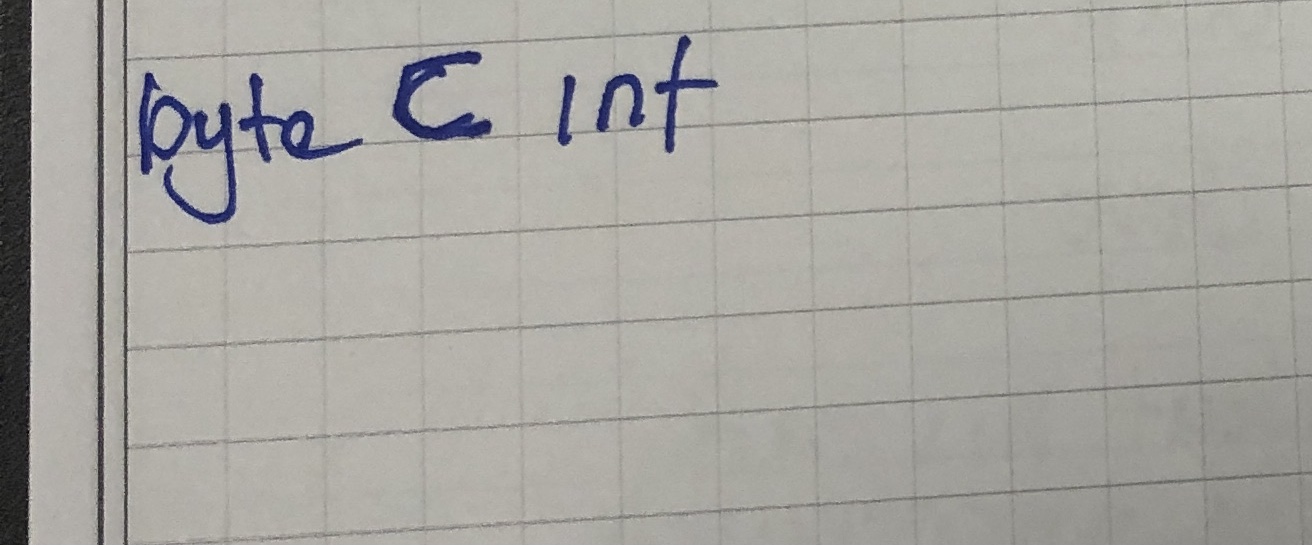 byte ⊂ int